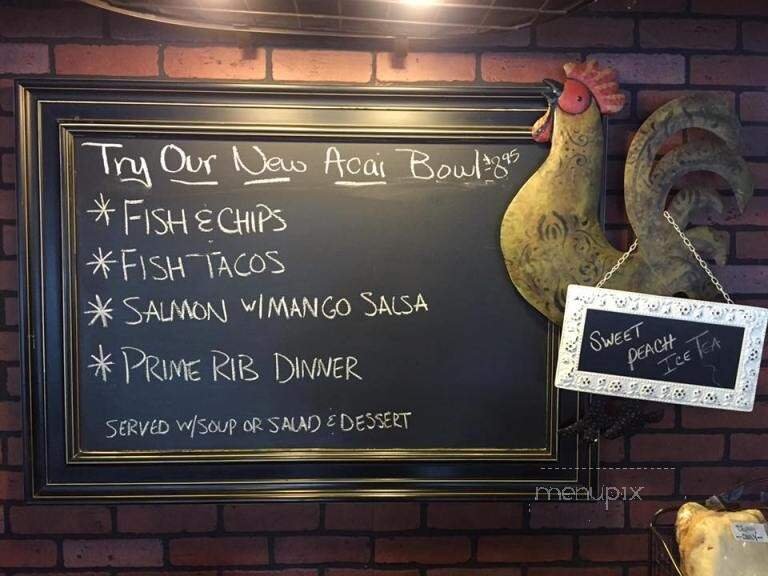 Try Our New Acai Bowl $8.95
* FISH & CHIPS
* FISH TACOS
* SALMON W/ MANGO SALSA
* PRIME RIB DINNER
SERVED W/SOUP OR SALAD & DESSERT
SWEET
PEACH
ICE TEA
menupix